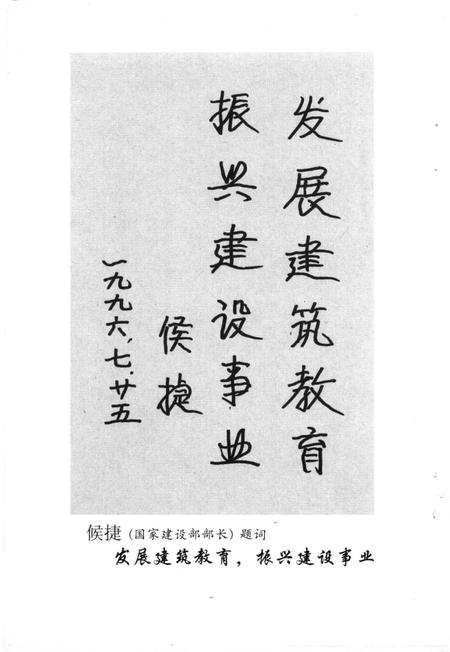 发展建筑教育
振兴建设事业
侯捷
一九九六、七、廿五
候捷（国家建设部部长）题词
发展建筑教育，振兴建设事业